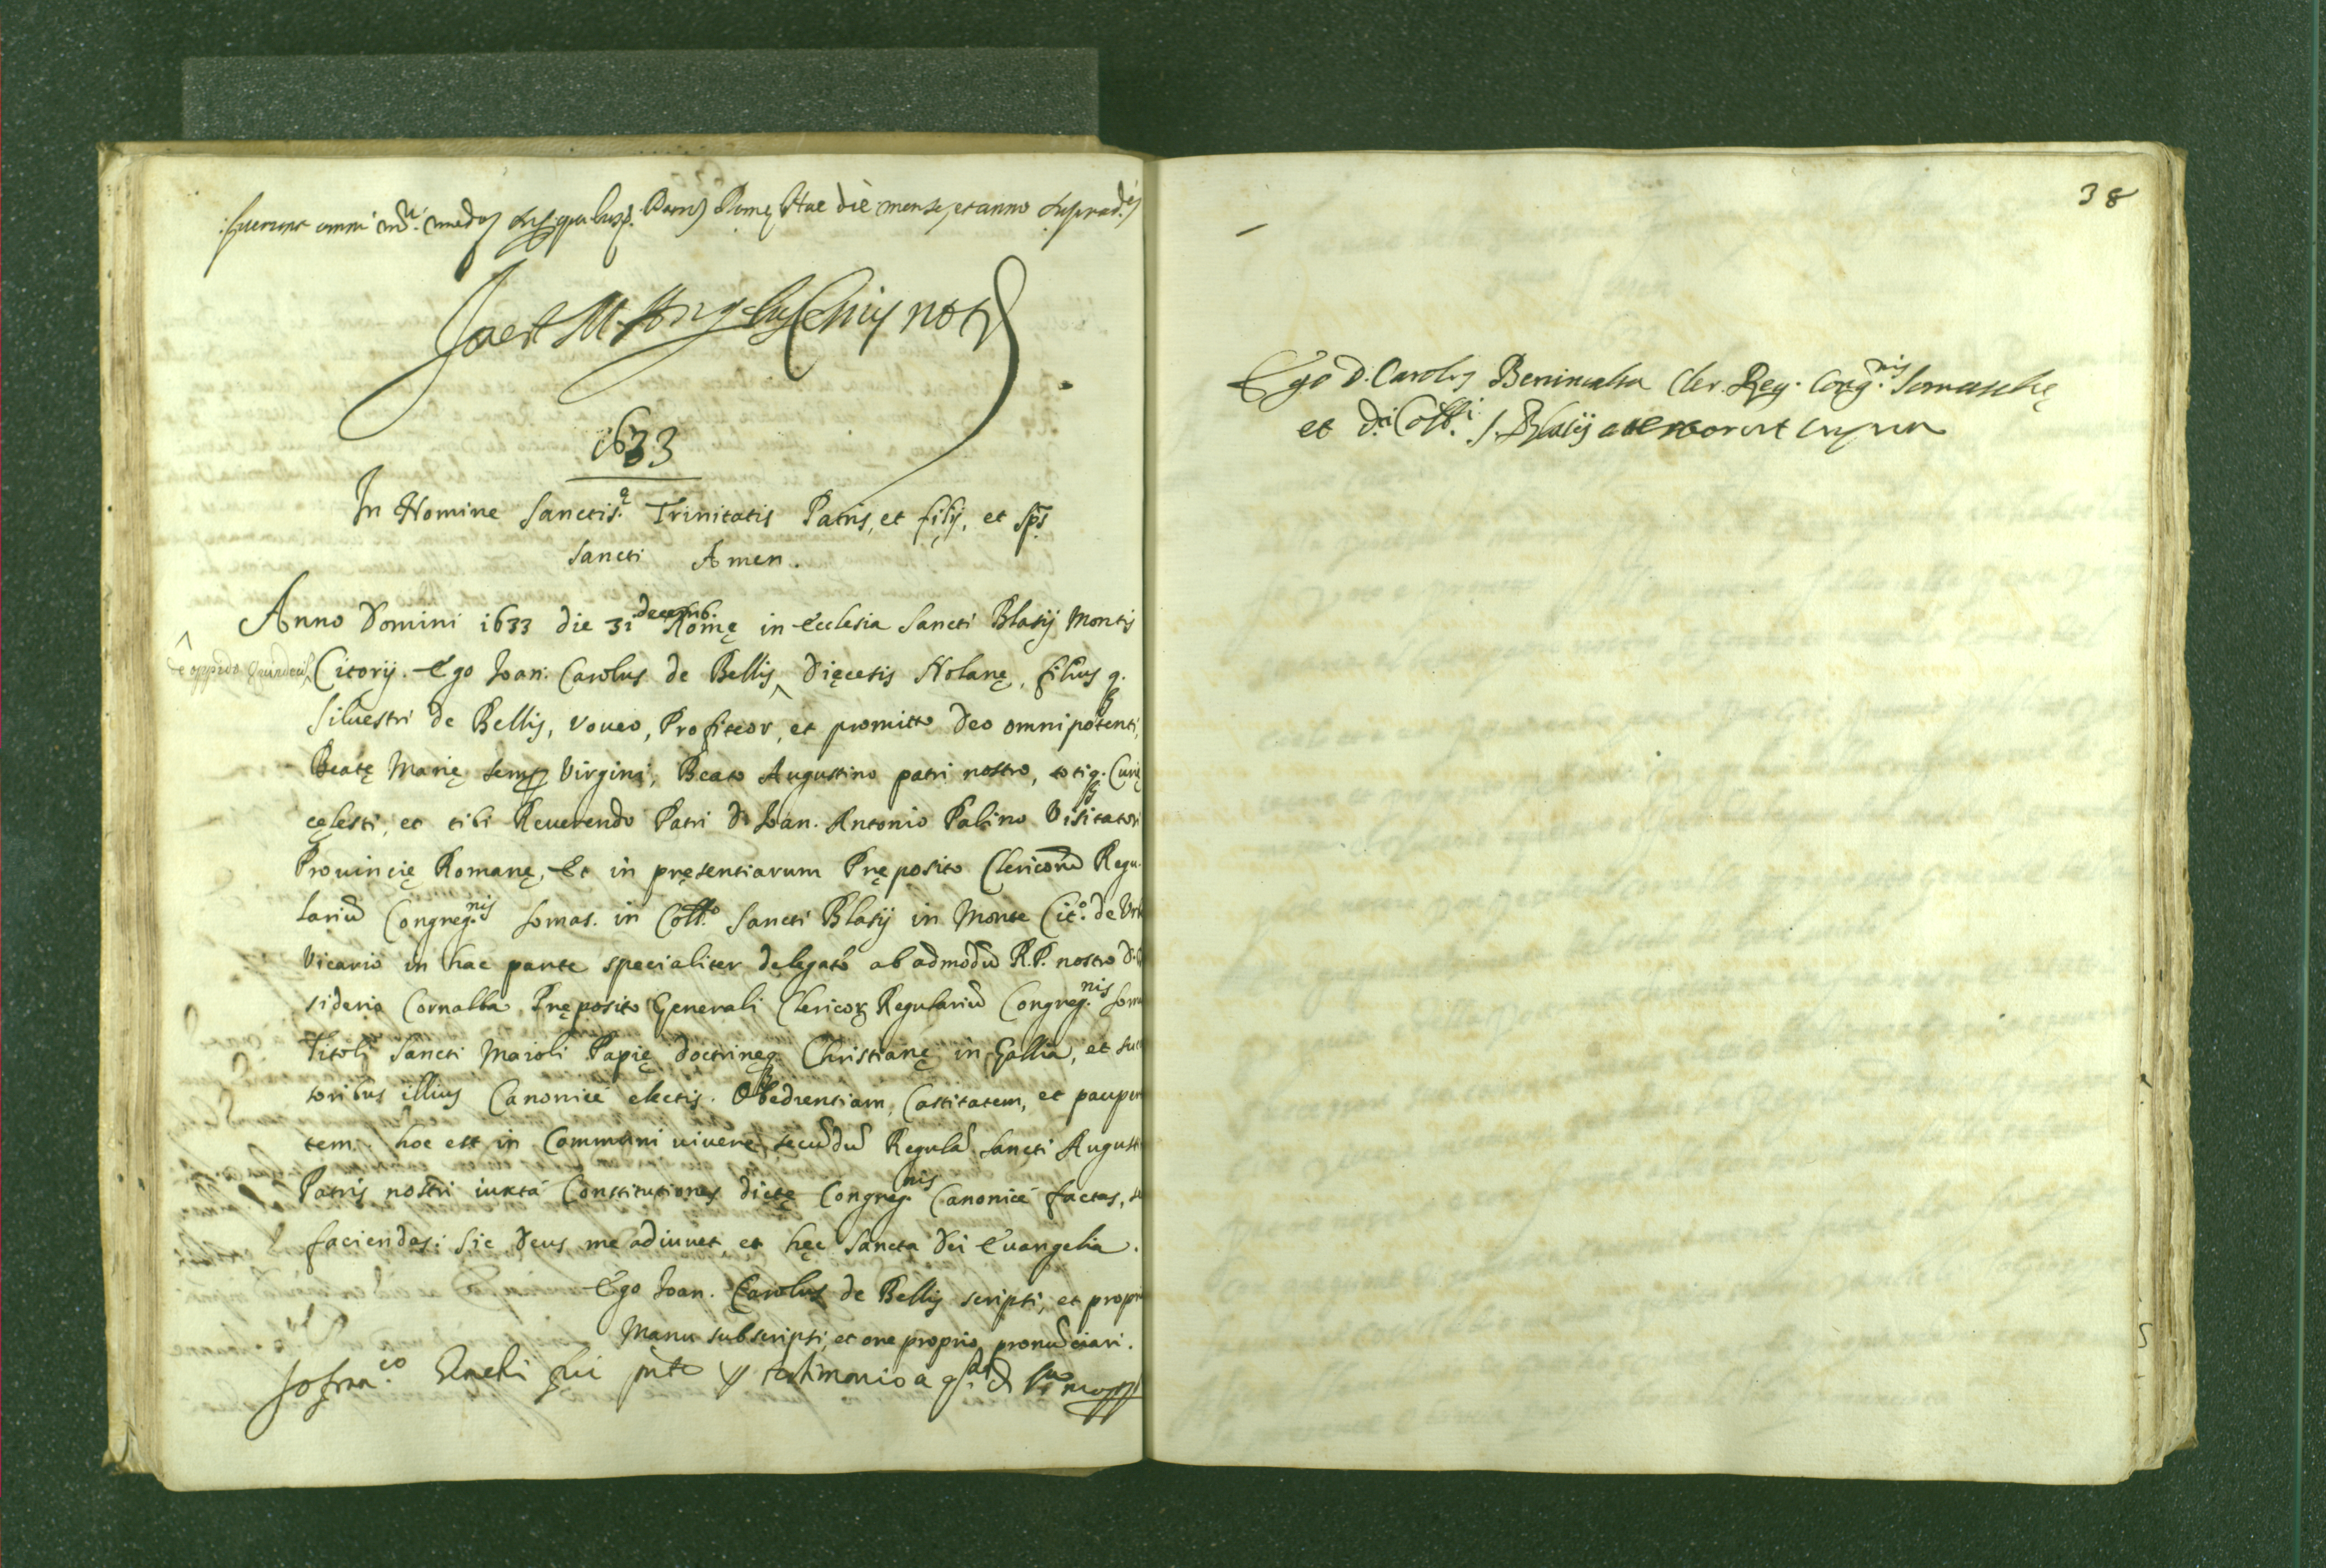 fuerunt omni Romę Hac die mense, et anno suprad.is
not.
1633
In Nomine Sanctis.ę Trinitatis Patris, et filij, et Sp̃s
Sancti Amen.
Anno Domini 1633 die 31 decemb. Romę in Ecclesia Sancti Blasij Montis
de oppido Citorij. Ego Ioan. Carolus de Bellis ^ Dięcesis Nolanę, filius q.
Siluestri de Bellis, voueo, Profiteor, et promitto Deo omnipotenti,
Beatę Marię semp Virgini, Beato Augustino patri nostro, totiq. Curię
cęlesti, et tibi Reuerendo Patri D. Ioan. Antonio Palino Visitatori
Prouincię Romanę, Et in pręsentiarum Pręposito Clericorū Regu
lariū Congreg.nis Somas. in Coll.o Sancti Blasij in Monte Cit.o de Vrb
Vicario in hac parte specialiter delegato ab admodū R.P. nostro D.
siderio Cornalba Pręposito Generali Clericoꝝ Regulariū Congreg.nis Som
Titoli Sancti Maioli Papię doctrinęq. Christianę in Gallia, et suc
toribus illius Canonicè electis. Obedientiam, Castitatem, et pauper
tem. hoc est in Communi viuere secūdū Regulā Sancti August
Patris nostri iuxtà Constitutiones dictę Congreg.nis Canonicè factas,
faciendas: Sic Deus me adiuuet, et hęc Sancta Dei Euangelia.
Ego Ioan. Carolus de Bellis scripsi, et propri
Manu subscripsi, et ore proprio pronūciaui.
Io fran.co fui pñte testimonio
38
Ego D. Carolus Benincasa Cler. Reg. Cong.nis Somaschę
et D.i Coll.i S. Blasij